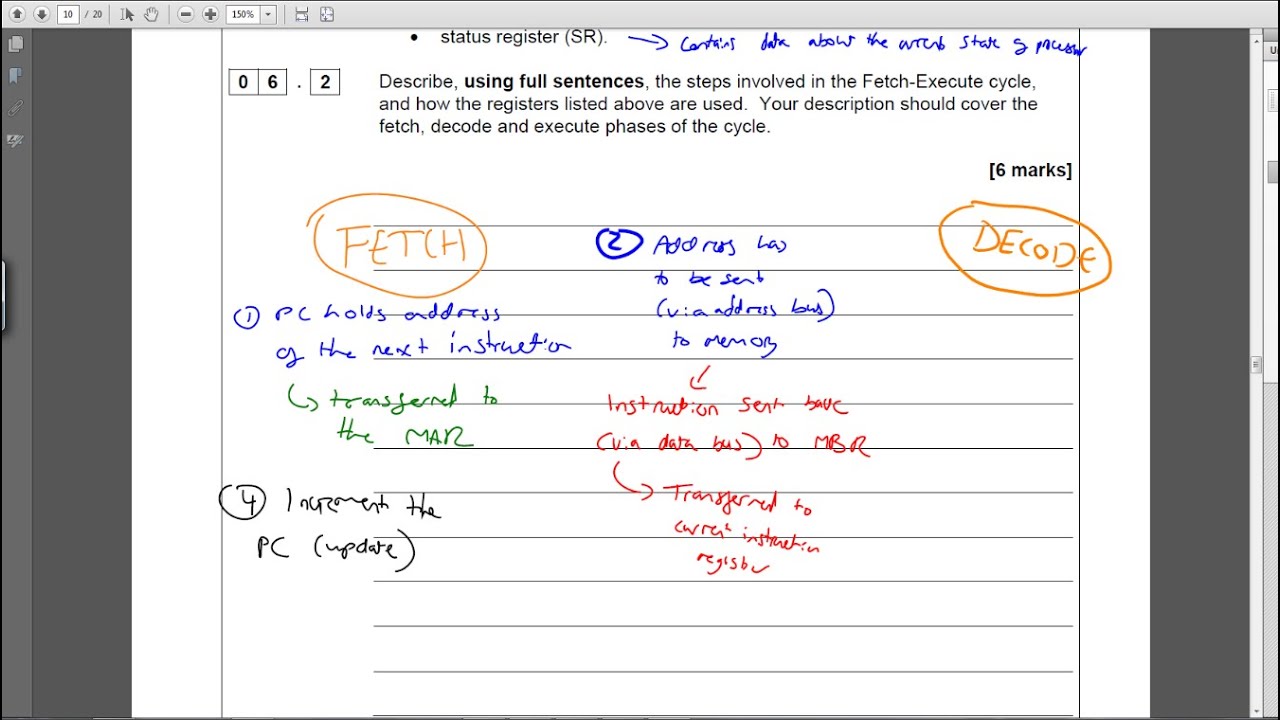 10 / 20
150%
• status register (SR). → Contains data about the current state of processor
0 6 . 2
Describe, using full sentences, the steps involved in the Fetch-Execute cycle,
and how the registers listed above are used. Your description should cover the
fetch, decode and execute phases of the cycle.
[6 marks]
FETCH
① PC holds address
of the next instruction
↳ transferred to
the MAR
④ Increment the
PC (update)
② Address has
to be sent
(via address bus)
to memory
↓
Instruction sent back
(via data bus) to MBR
↳ Transferred to
current instruction
register
DECODE